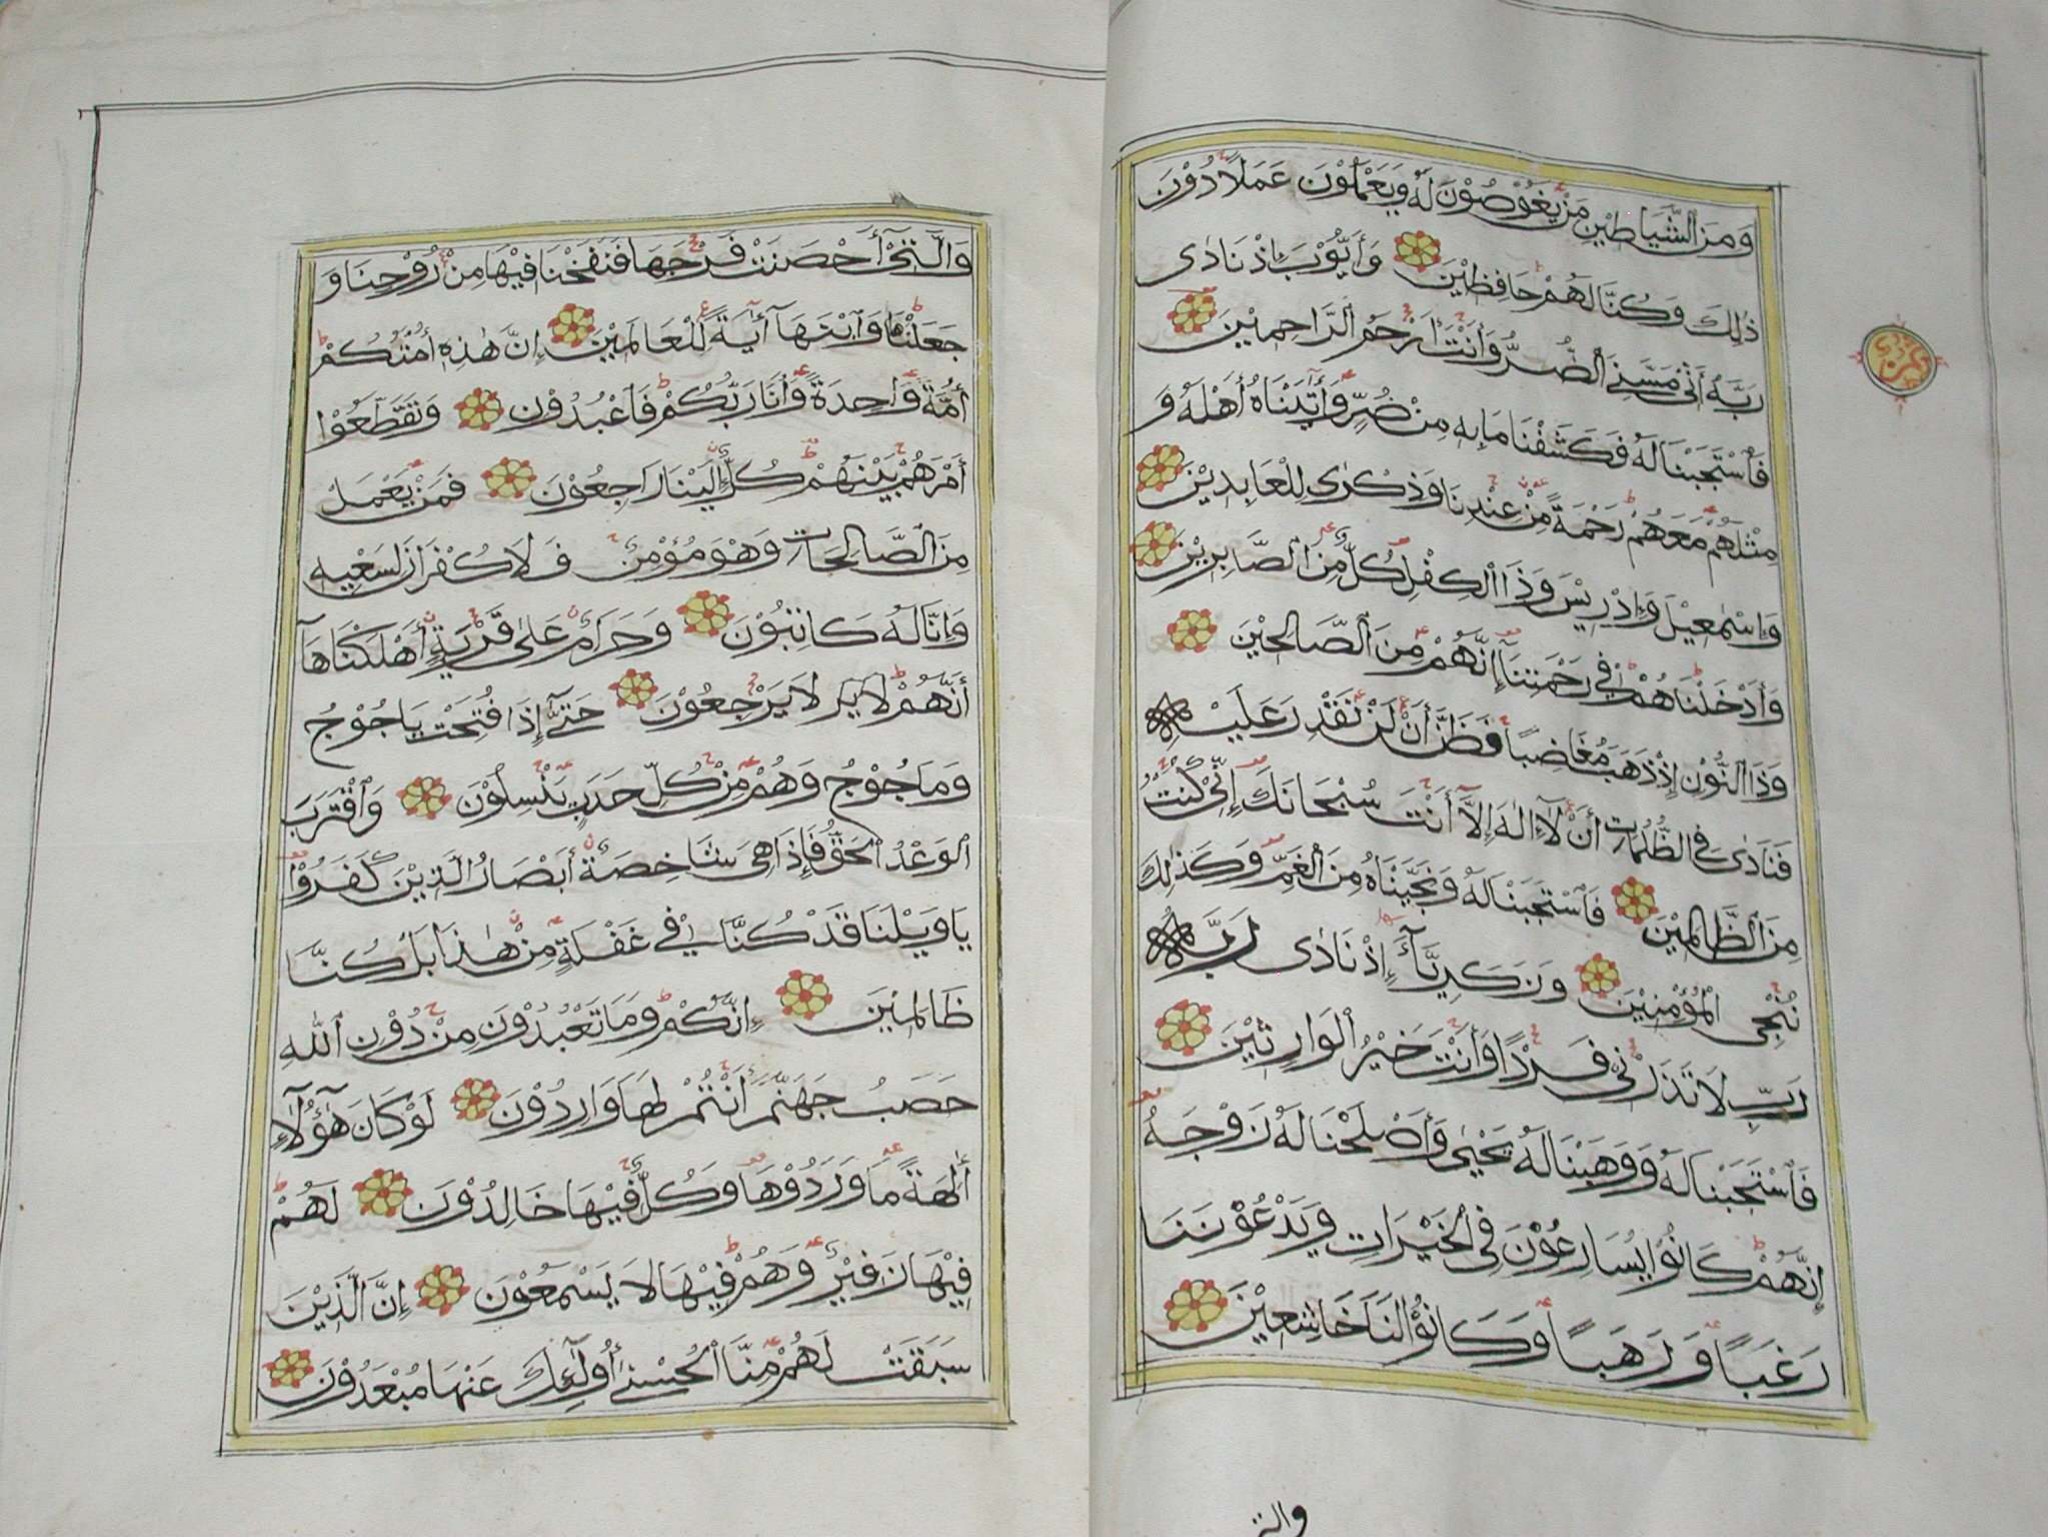 وَمِنَ الشَّيَاطِيْنِ مَنْ يَغُوْصُوْنَ لَهُ وَيَعْمَلُوْنَ عَمَلًا دُوْنَ
ذٰلِكَ وَكُنَّا لَهُمْ حَافِظِيْنَ وَأَيُّوْبَ إِذْ نَادٰى
رَبَّهُ أَنِّيْ مَسَّنِيَ الضُّرُّ وَأَنْتَ أَرْحَمُ الرَّاحِمِيْنَ
فَاسْتَجَبْنَا لَهُ فَكَشَفْنَا مَا بِهِ مِنْ ضُرٍّ وَأٰتَيْنَاهُ أَهْلَهُ وَ
مِثْلَهُمْ مَعَهُمْ رَحْمَةً مِنْ عِنْدِنَا وَذِكْرٰى لِلْعَابِدِيْنَ
وَإِسْمٰعِيْلَ وَإِدْرِيْسَ وَذَا الْكِفْلِ كُلٌّ مِنَ الصَّابِرِيْنَ
وَأَدْخَلْنَاهُمْ فِيْ رَحْمَتِنَآ إِنَّهُمْ مِنَ الصَّالِحِيْنَ
وَذَا النُّوْنِ إِذْ ذَهَبَ مُغَاضِبًا فَظَنَّ أَنْ لَنْ نَقْدِرَ عَلَيْهِ
فَنَادٰى فِي الظُّلُمَاتِ أَنْ لَآ إِلٰهَ إِلَّآ أَنْتَ سُبْحَانَكَ إِنِّيْ كُنْتُ
مِنَ الظَّالِمِيْنَ فَاسْتَجَبْنَا لَهُ وَنَجَّيْنَاهُ مِنَ الْغَمِّ وَكَذٰلِكَ
نُنْجِى الْمُؤْمِنِيْنَ وَزَكَرِيَّآءَ إِذْ نَادٰى رَبَّهُ
رَبِّ لَا تَذَرْنِيْ فَرْدًا وَأَنْتَ خَيْرُ الْوَارِثِيْنَ
فَاسْتَجَبْنَا لَهُ وَوَهَبْنَا لَهُ يَحْيٰى وَأَصْلَحْنَا لَهُ زَوْجَهُ
إِنَّهُمْ كَانُوْا يُسَارِعُوْنَ فِي الْخَيْرَاتِ وَيَدْعُوْنَنَا
رَغَبًا وَرَهَبًا وَكَانُوْا لَنَا خَاشِعِيْنَ
والتي
وَالَّتِيْٓ أَحْصَنَتْ فَرْجَهَا فَنَفَخْنَا فِيْهَا مِنْ رُوْحِنَا وَ
جَعَلْنَاهَا وَابْنَهَآ أٰيَةً لِلْعَالَمِيْنَ إِنَّ هٰذِهِ أُمَّتُكُمْ
أُمَّةً وَاحِدَةً وَأَنَا رَبُّكُمْ فَاعْبُدُوْنِ وَتَقَطَّعُوْا
أَمْرَهُمْ بَيْنَهُمْ كُلٌّ إِلَيْنَا رَاجِعُوْنَ فَمَنْ يَعْمَلْ
مِنَ الصَّالِحَاتِ وَهُوَ مُؤْمِنٌ فَلَا كُفْرَانَ لِسَعْيِهِ
وَإِنَّا لَهُ كَاتِبُوْنَ وَحَرَامٌ عَلٰى قَرْيَةٍ أَهْلَكْنَاهَآ
أَنَّهُمْ لَا يَر لَا يَرْجِعُوْنَ حَتّٰىٓ إِذَا فُتِحَتْ يَاجُوْجُ
وَمَاجُوْجُ وَهُمْ مِنْ كُلِّ حَدَبٍ يَنْسِلُوْنَ وَاقْتَرَبَ
الْوَعْدُ الْحَقُّ فَإِذَا هِيَ شَاخِصَةٌ أَبْصَارُ الَّذِيْنَ كَفَرُوْا
يَا وَيْلَنَا قَدْ كُنَّا فِيْ غَفْلَةٍ مِنْ هٰذَا بَلْ كُنَّا
ظَالِمِيْنَ إِنَّكُمْ وَمَا تَعْبُدُوْنَ مِنْ دُوْنِ اللّٰهِ
حَصَبُ جَهَنَّمَ أَنْتُمْ لَهَا وَارِدُوْنَ لَوْ كَانَ هٰٓؤُلَآءِ
أٰلِهَةً مَا وَرَدُوْهَا وَكُلٌّ فِيْهَا خَالِدُوْنَ لَهُمْ
فِيْهَا زَفِيْرٌ وَهُمْ فِيْهَا لَا يَسْمَعُوْنَ إِنَّ الَّذِيْنَ
سَبَقَتْ لَهُمْ مِنَّا الْحُسْنٰىٓ أُولٰٓئِكَ عَنْهَا مُبْعَدُوْنَ